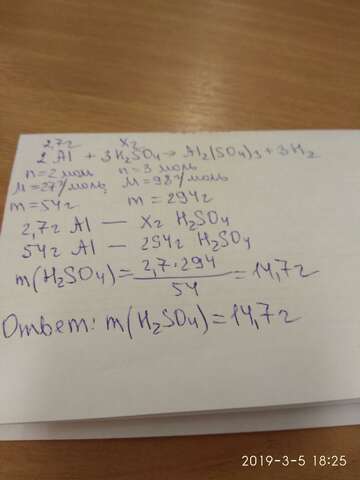 2,7г х г
2Al + 3H₂SO₄ → Al₂(SO₄)₃ + 3H₂
n=2моль n=3 моль
M=27г/моль M=98г/моль
m=54г m=294г
2,7г Al — Xг H₂SO₄
54г Al — 294г H₂SO₄
m(H₂SO₄) = 2,7·294 / 54 = 14,7г
Ответ: m(H₂SO₄)=14,7г
2019-3-5 18:25